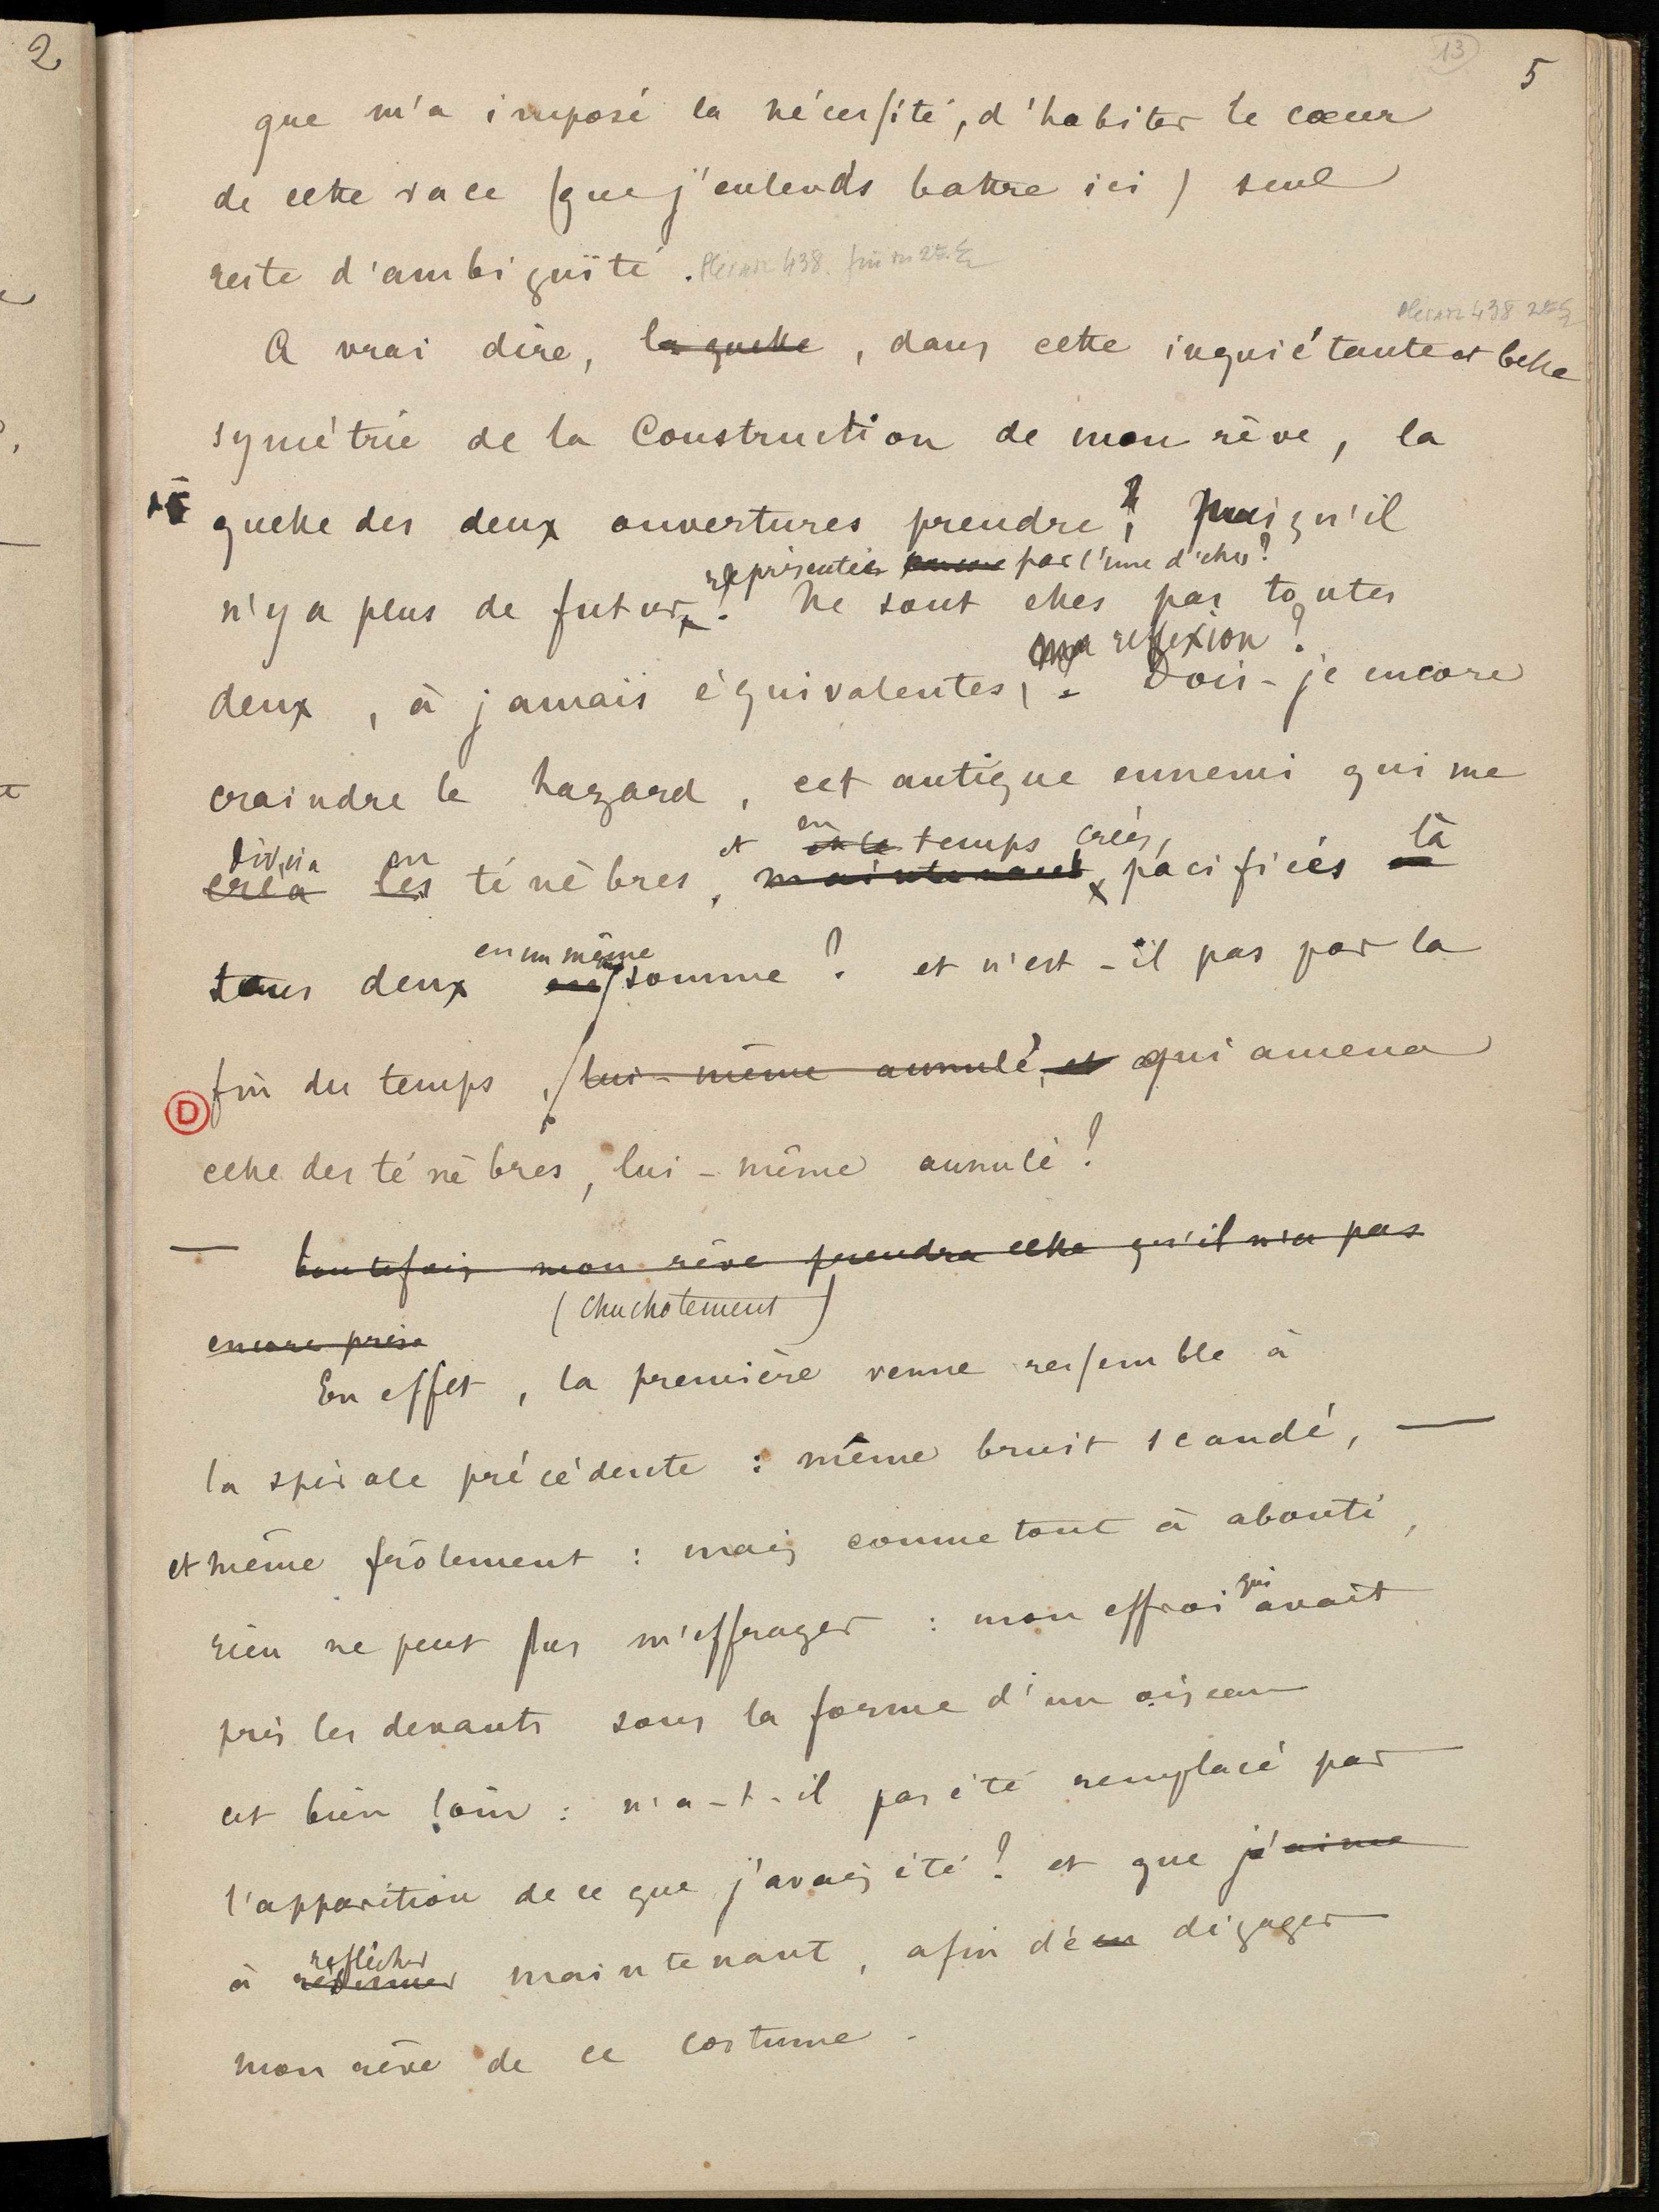 2
13
5
que m'a imposé la nécessité, d'habiter le cœur
de cette race (que j'entends battre ici) seul
reste d'ambiguïté. Pléiade 438. fin du 2e §
Pléiade 438 2e §
A vrai dire, laquelle, dans cette inquiétante et belle
symétrie de la construction de mon rêve, la
quelle des deux ouvertures prendre ? puisqu'il
représentée par l'une d'elles ?
n'y a plus de futur. Ne sont elles pas toutes
ma reflexion ?
deux, à jamais équivalentes, Dois-je encore
craindre le hazard, cet antique ennemi qui me
divisa en et en le temps créés, là
créa les ténèbres, maintenant pacifiés
en un même
tous deux en somme ? et n'est-il pas par la
fin du temps, lui-même annulé, et qui amena
D
celle des ténèbres, lui-même annulé ?
— toutefois mon rêve prendra celle qu'il n'a pas
encore prise (Chuchotement)
En effet, la première venue ressemble à
la spirale précédente : même bruit scandé, —
et même frôlement : mais comme tout à abouti,
rien ne peut plus m'effrayer : mon effroi qui avait
pris les devants sous la forme d'un oiseau
est bien loin : n'a-t-il pas été remplacé par
l'apparition de ce que j'avais été ? et que j'aime
réflécher
à maintenant, afin de en dégager
mon rêve de ce costume.